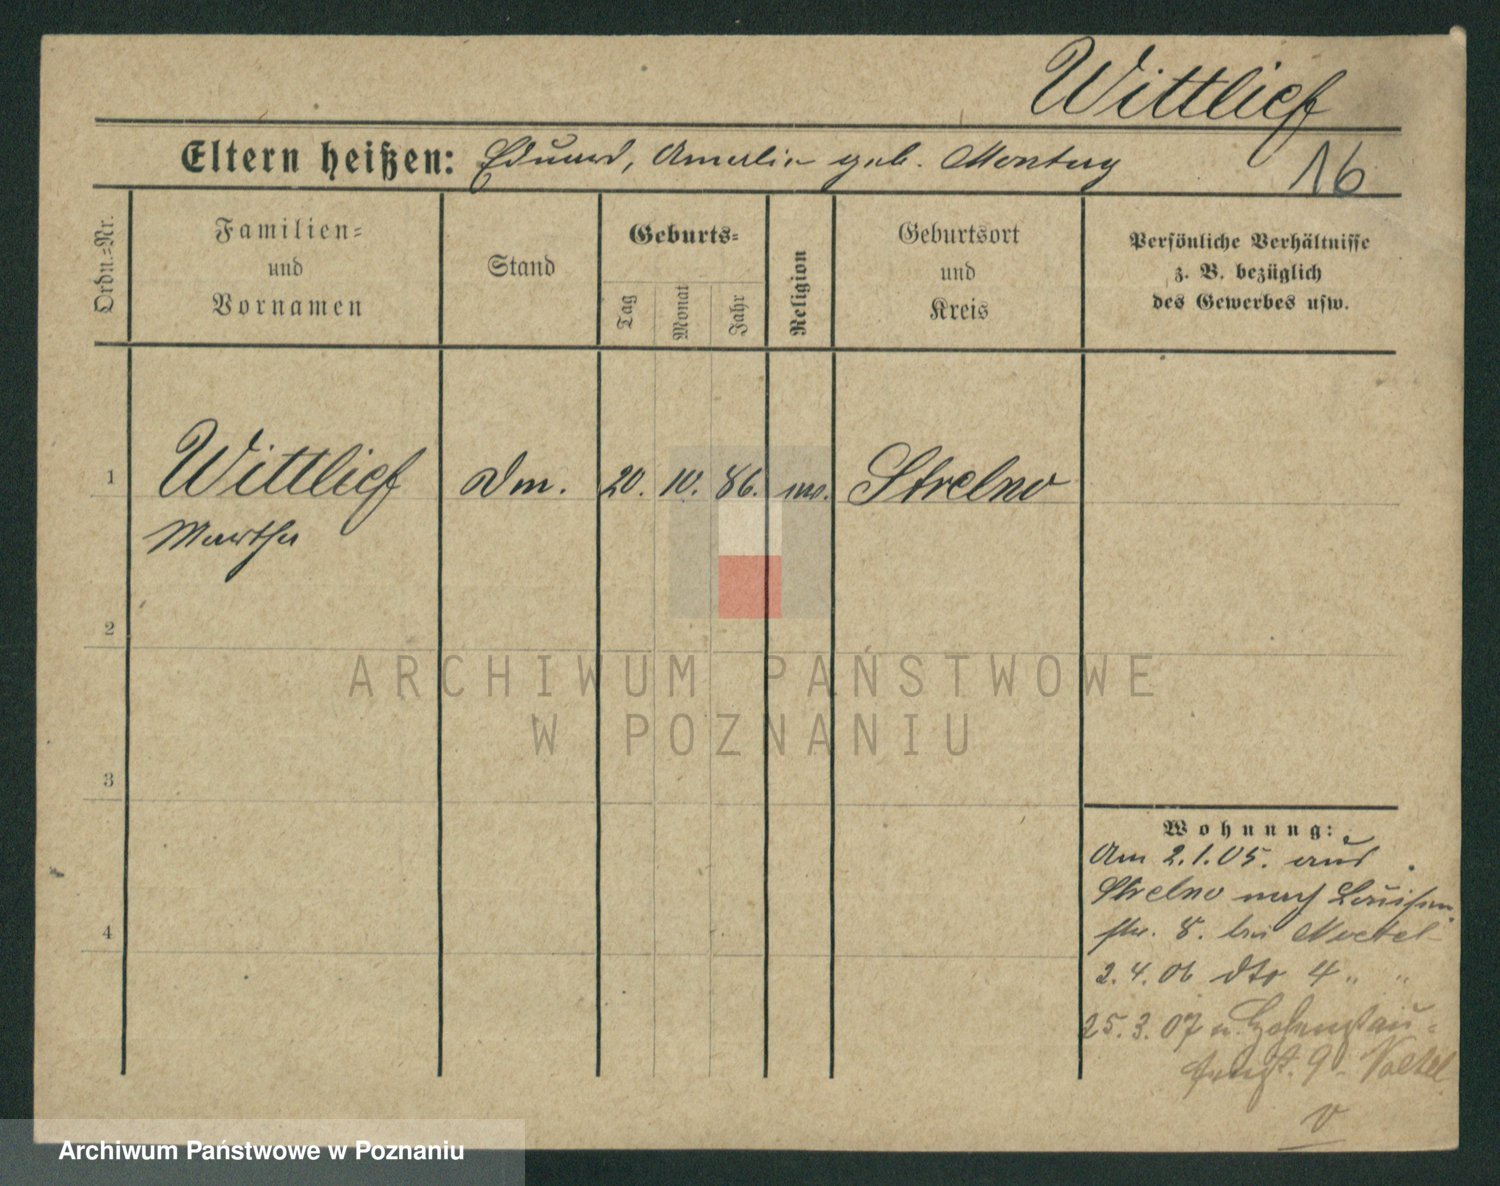 Wittlief
Eltern heißen: Eduard, Amalie geb. Montag
16
Ordn.-Nr.
Familien-
und
Vornamen
Stand
Geburts-
Tag
Monat
Jahr
Religion
Geburtsort
und
Kreis
Persönliche Verhältnisse
z. B. bezüglich
des Gewerbes usw.
1
Wittlief
Martha
Dm.
20. 10. 86.
Strelno
2
ARCHIWUM PAŃSTWOWE
W POZNANIU
3
4
Wohnung:
Am 2.1.05. aus
Strelno nach Louisen
str. 8. bei
2.4.06 dto 4 " "
25.3.07 n. Hohenstau-
fenst. 9
Archiwum Państwowe w Poznaniu